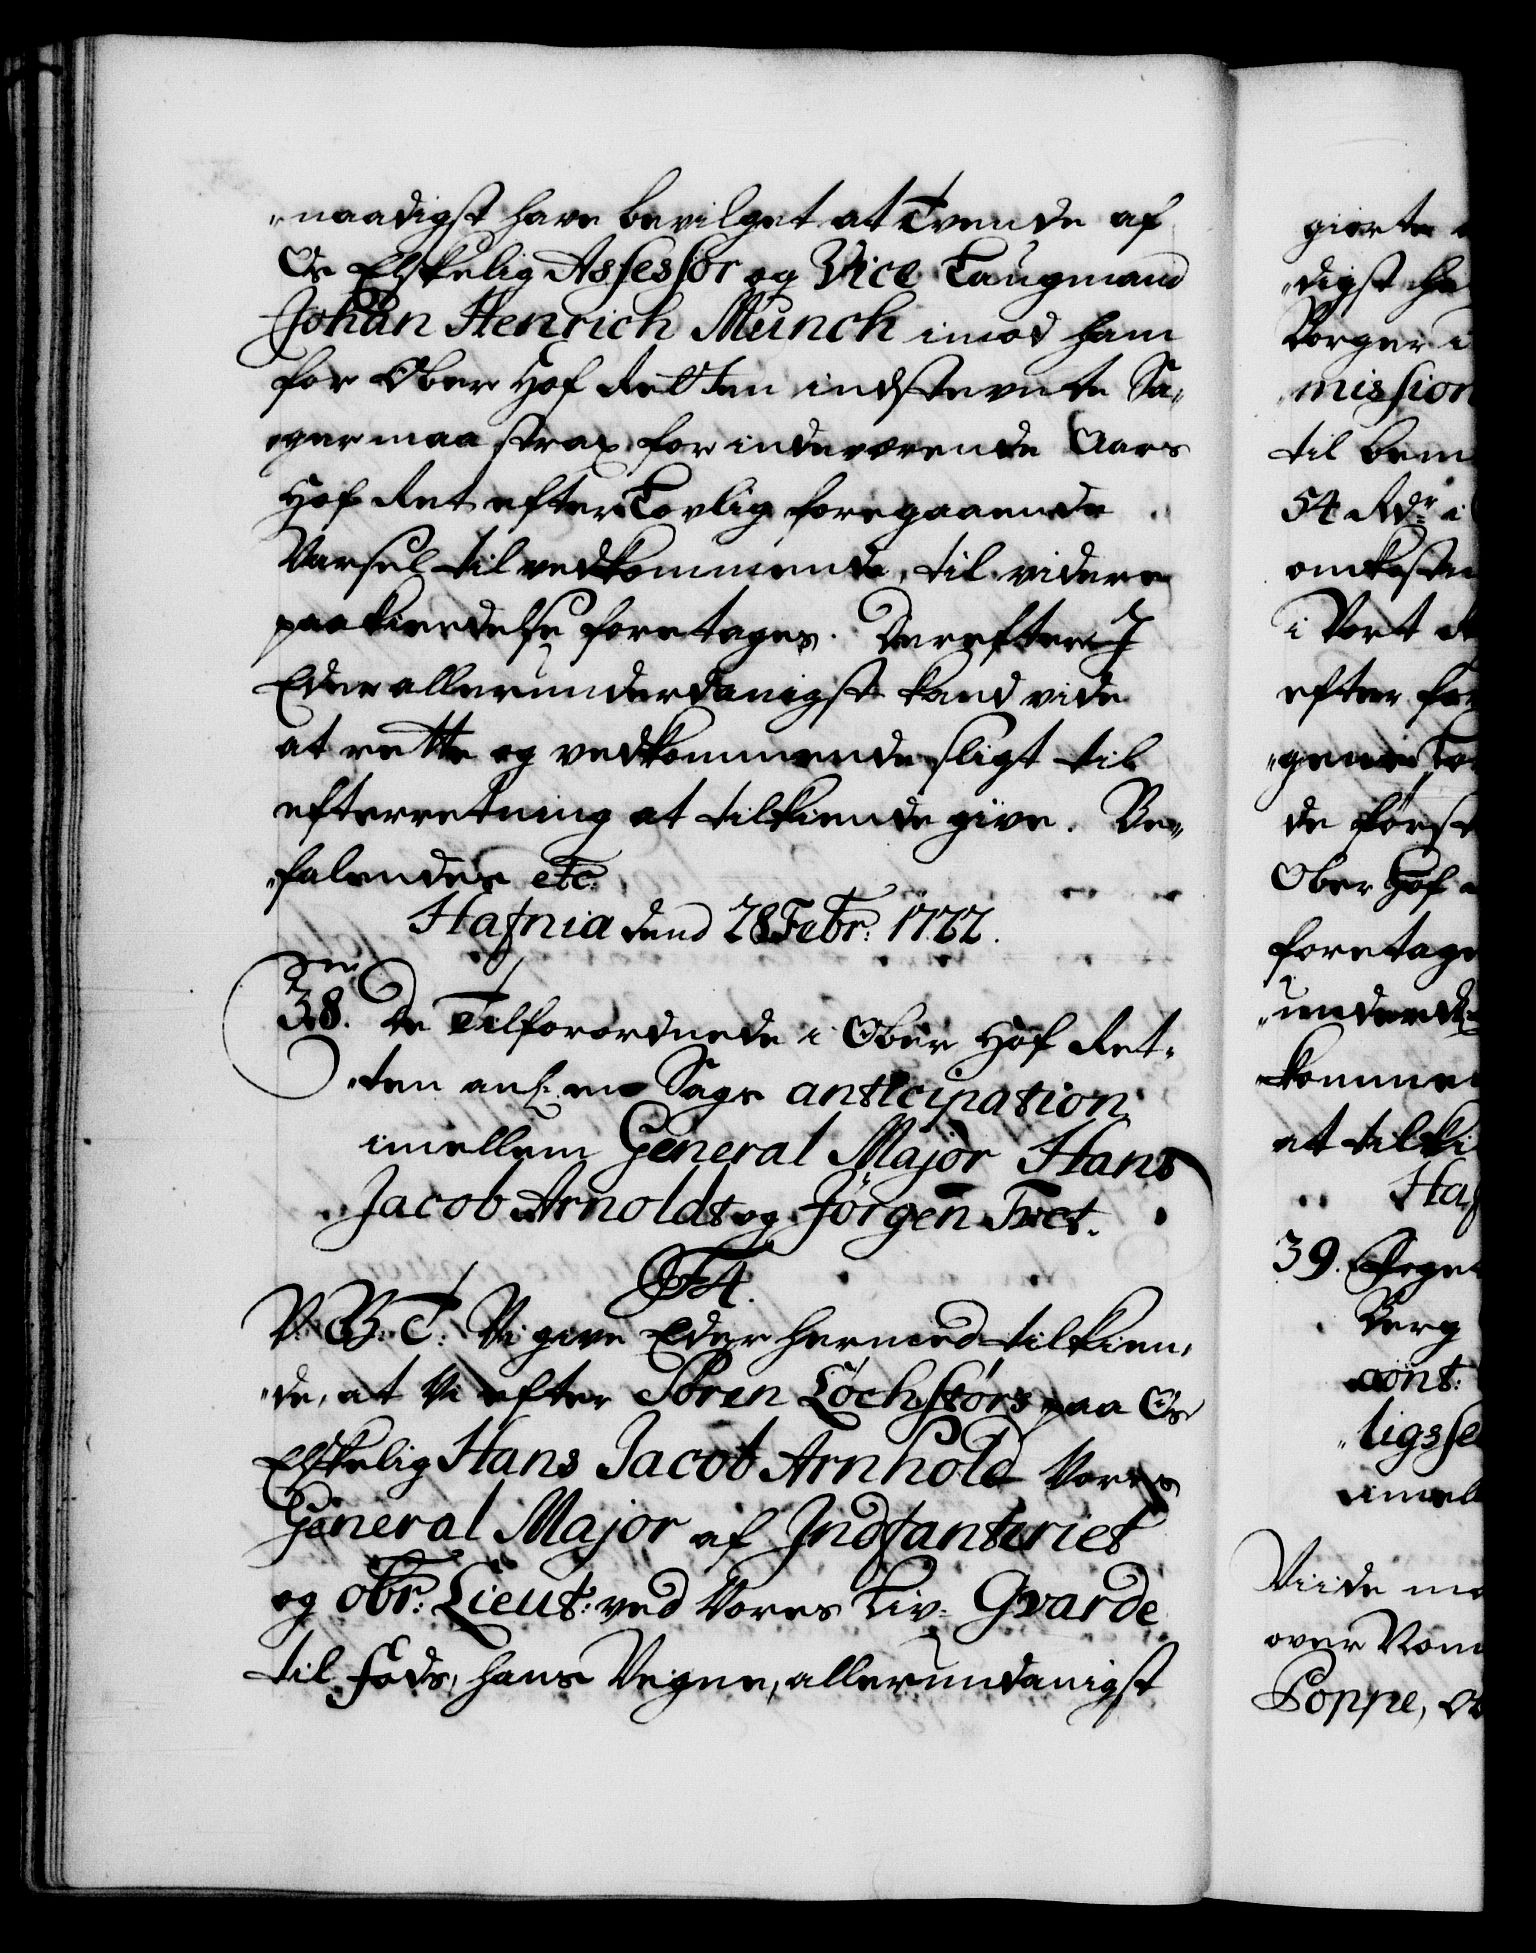 "naadigst have bevilget at Tvende af
Os Elskelig Assessor og Vice Laugmand
Johan Henrich Munch imod ham
for Ober Hof Retten indstevnte Sa„
„ger maa strax for indeværende Aars
Hof Ret efter Lovlig foregaaende
Varsel til vedkommende, til videre
paakiendelse foretages. Derefter I
Eder allerunderdanigst kand vide
at rette og vedkommende sligt til
efterretning at tilkiende give. Be„
„falendes etc:
Hafnia dend 28 Febr: 1722.
38. De Tilforordnede i Ober Hof Ret„
„ten anl: en Sags anticipation
imellem General Major Hans
Jacob Arnoldt og Jörgen Tvet.
F4.
V. G. T. Vi give Eder hermed tilkien„
„de, at Vi efter Sören Löchstörs paa Os
Elskelig Hans Jacob Arnhold Vores
General Major af Indfanteriet
og Obr: Lieut: ved Vores Liv Gvarde
til Fods, hans Vegne, allerundanigst
giorte
„digst ha
Borger i
mission
til bem
54 Rdr i
omkostn
i Vort
efter for
„gende Lov
de först
Ober Hof
foretage
„underd
komme
at tilki
Haf
39.
Berg
cont:
„ligsse
imel
Vii de
over Nom
Poppe,